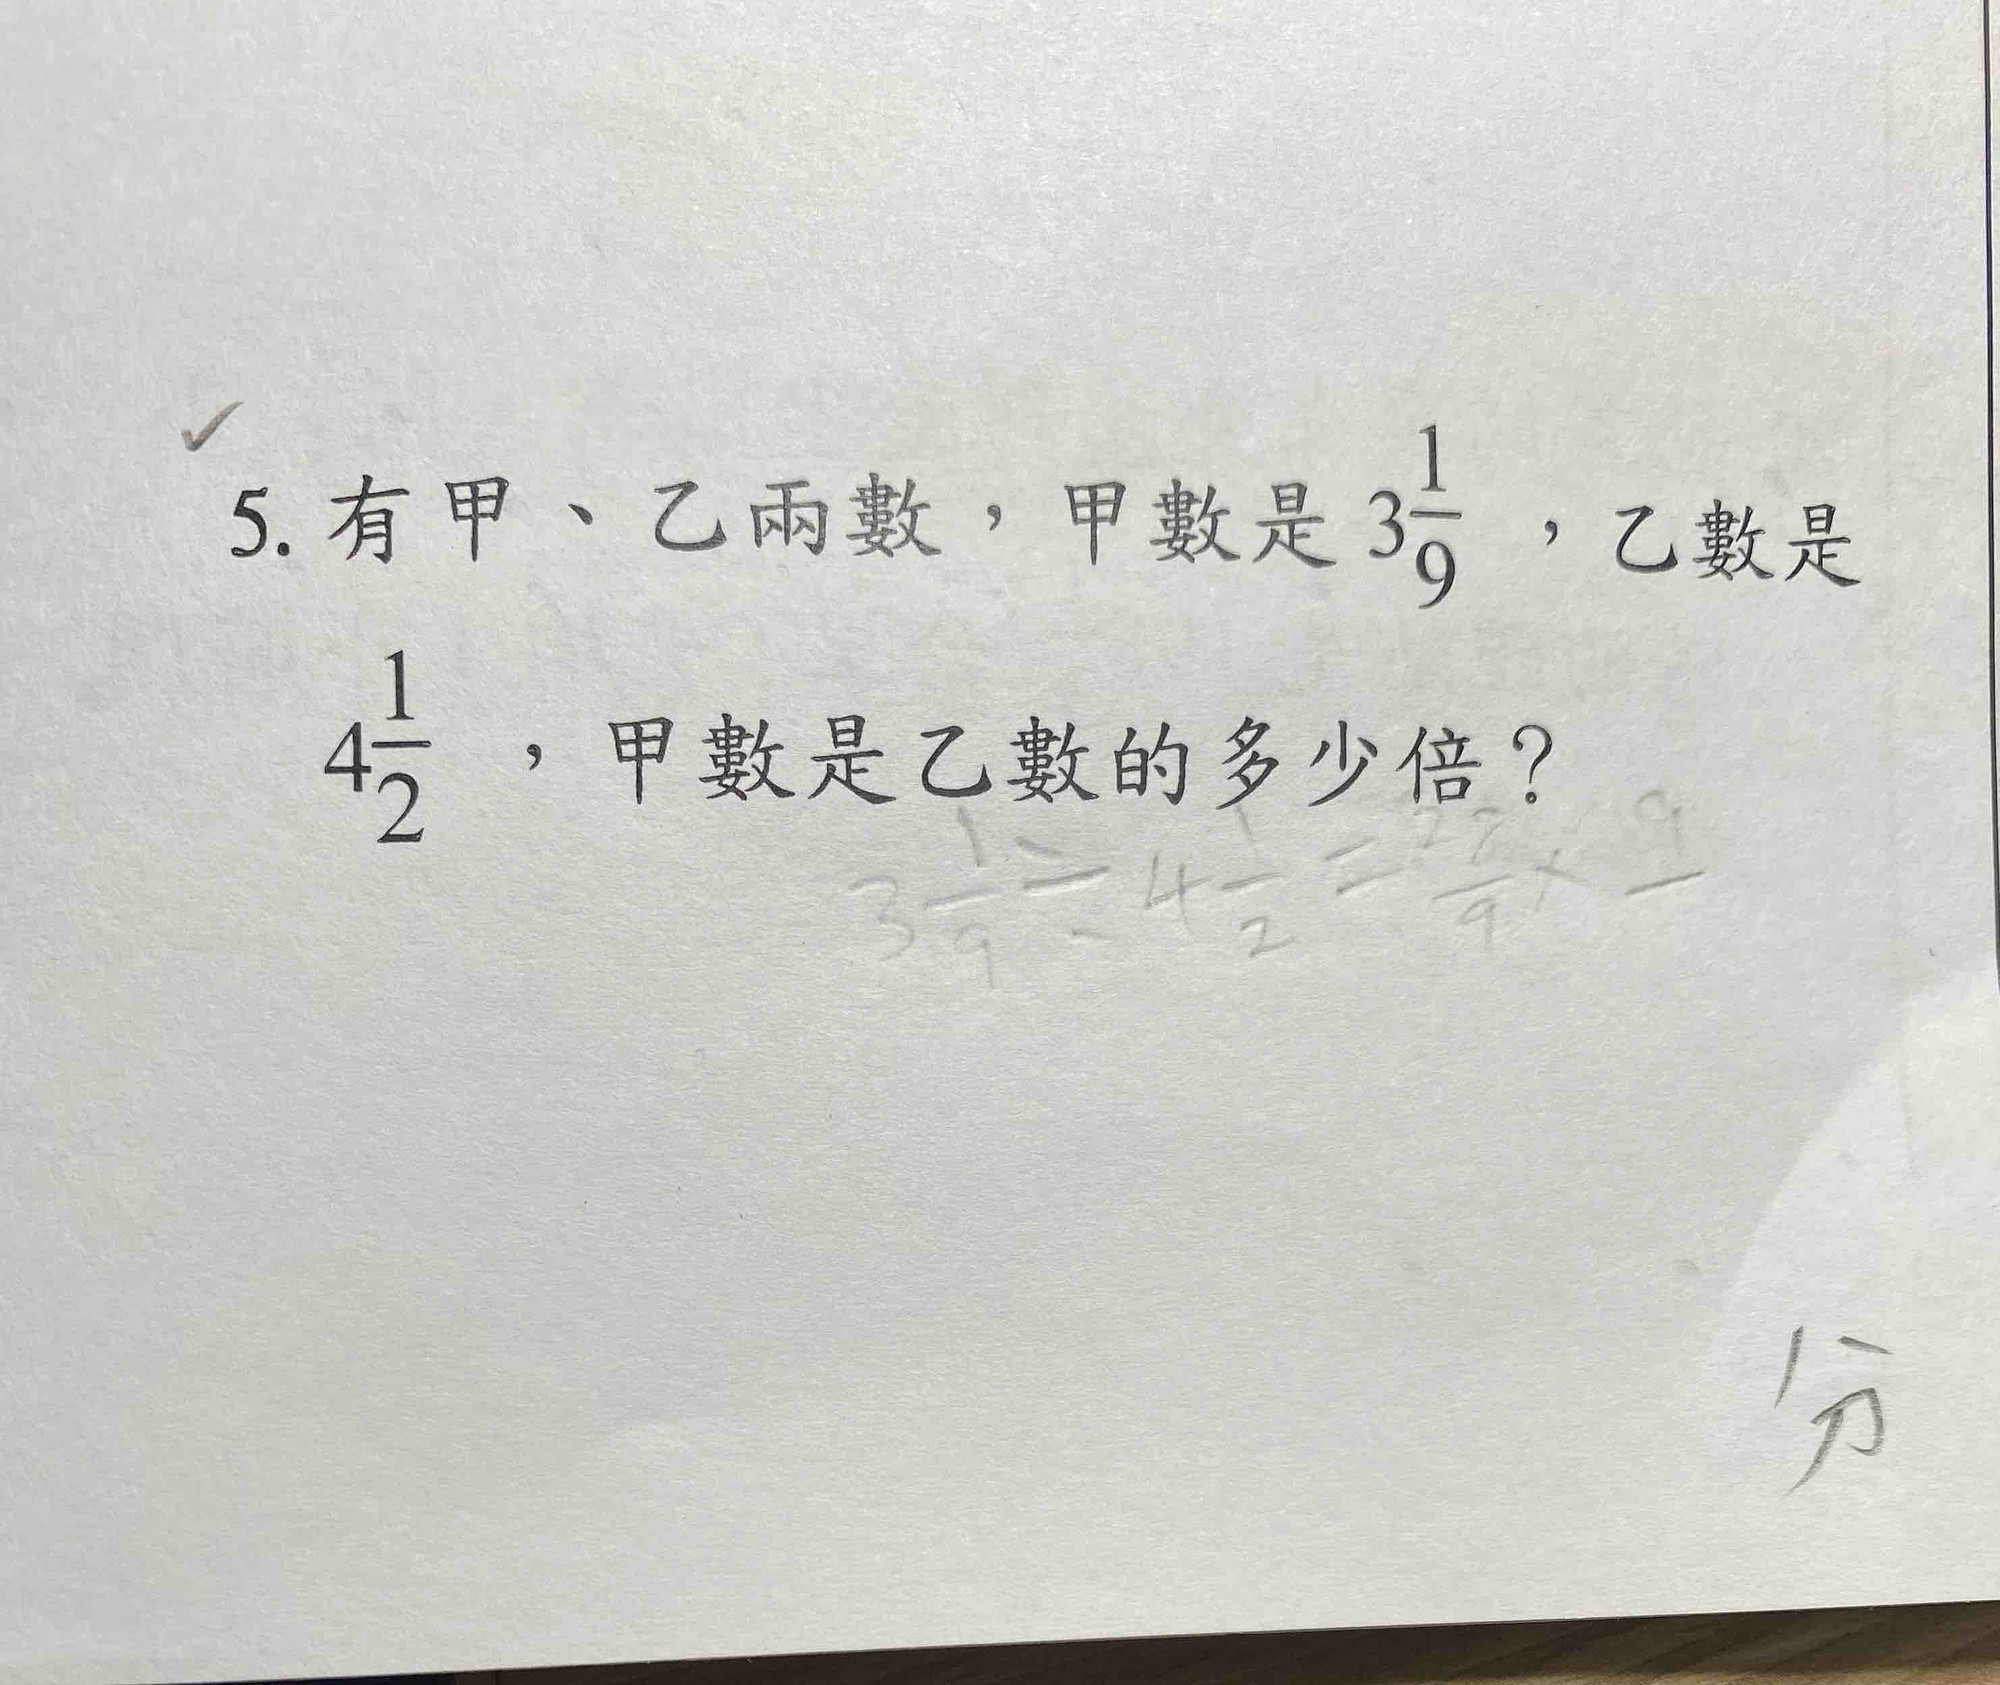 ✓
5. 有甲、乙兩數，甲數是 3 1/9 ，乙數是
4 1/2 ，甲數是乙數的多少倍？
3 1/9 ÷ 4 1/2 = /9 × 9/
分